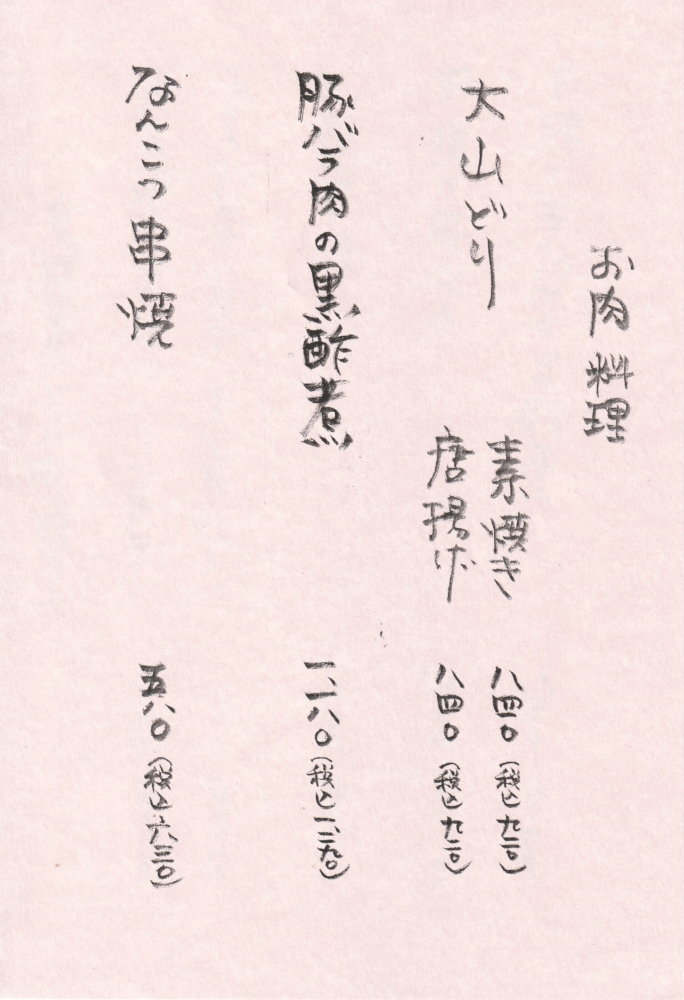 お肉料理
大山どり
素焼き 八四〇(税込九二〇)
唐揚げ 八四〇(税込九二〇)
豚バラ肉の黒酢煮 一、一八〇(税込一、二九〇)
なんこつ串焼 五八〇(税込六、三〇)